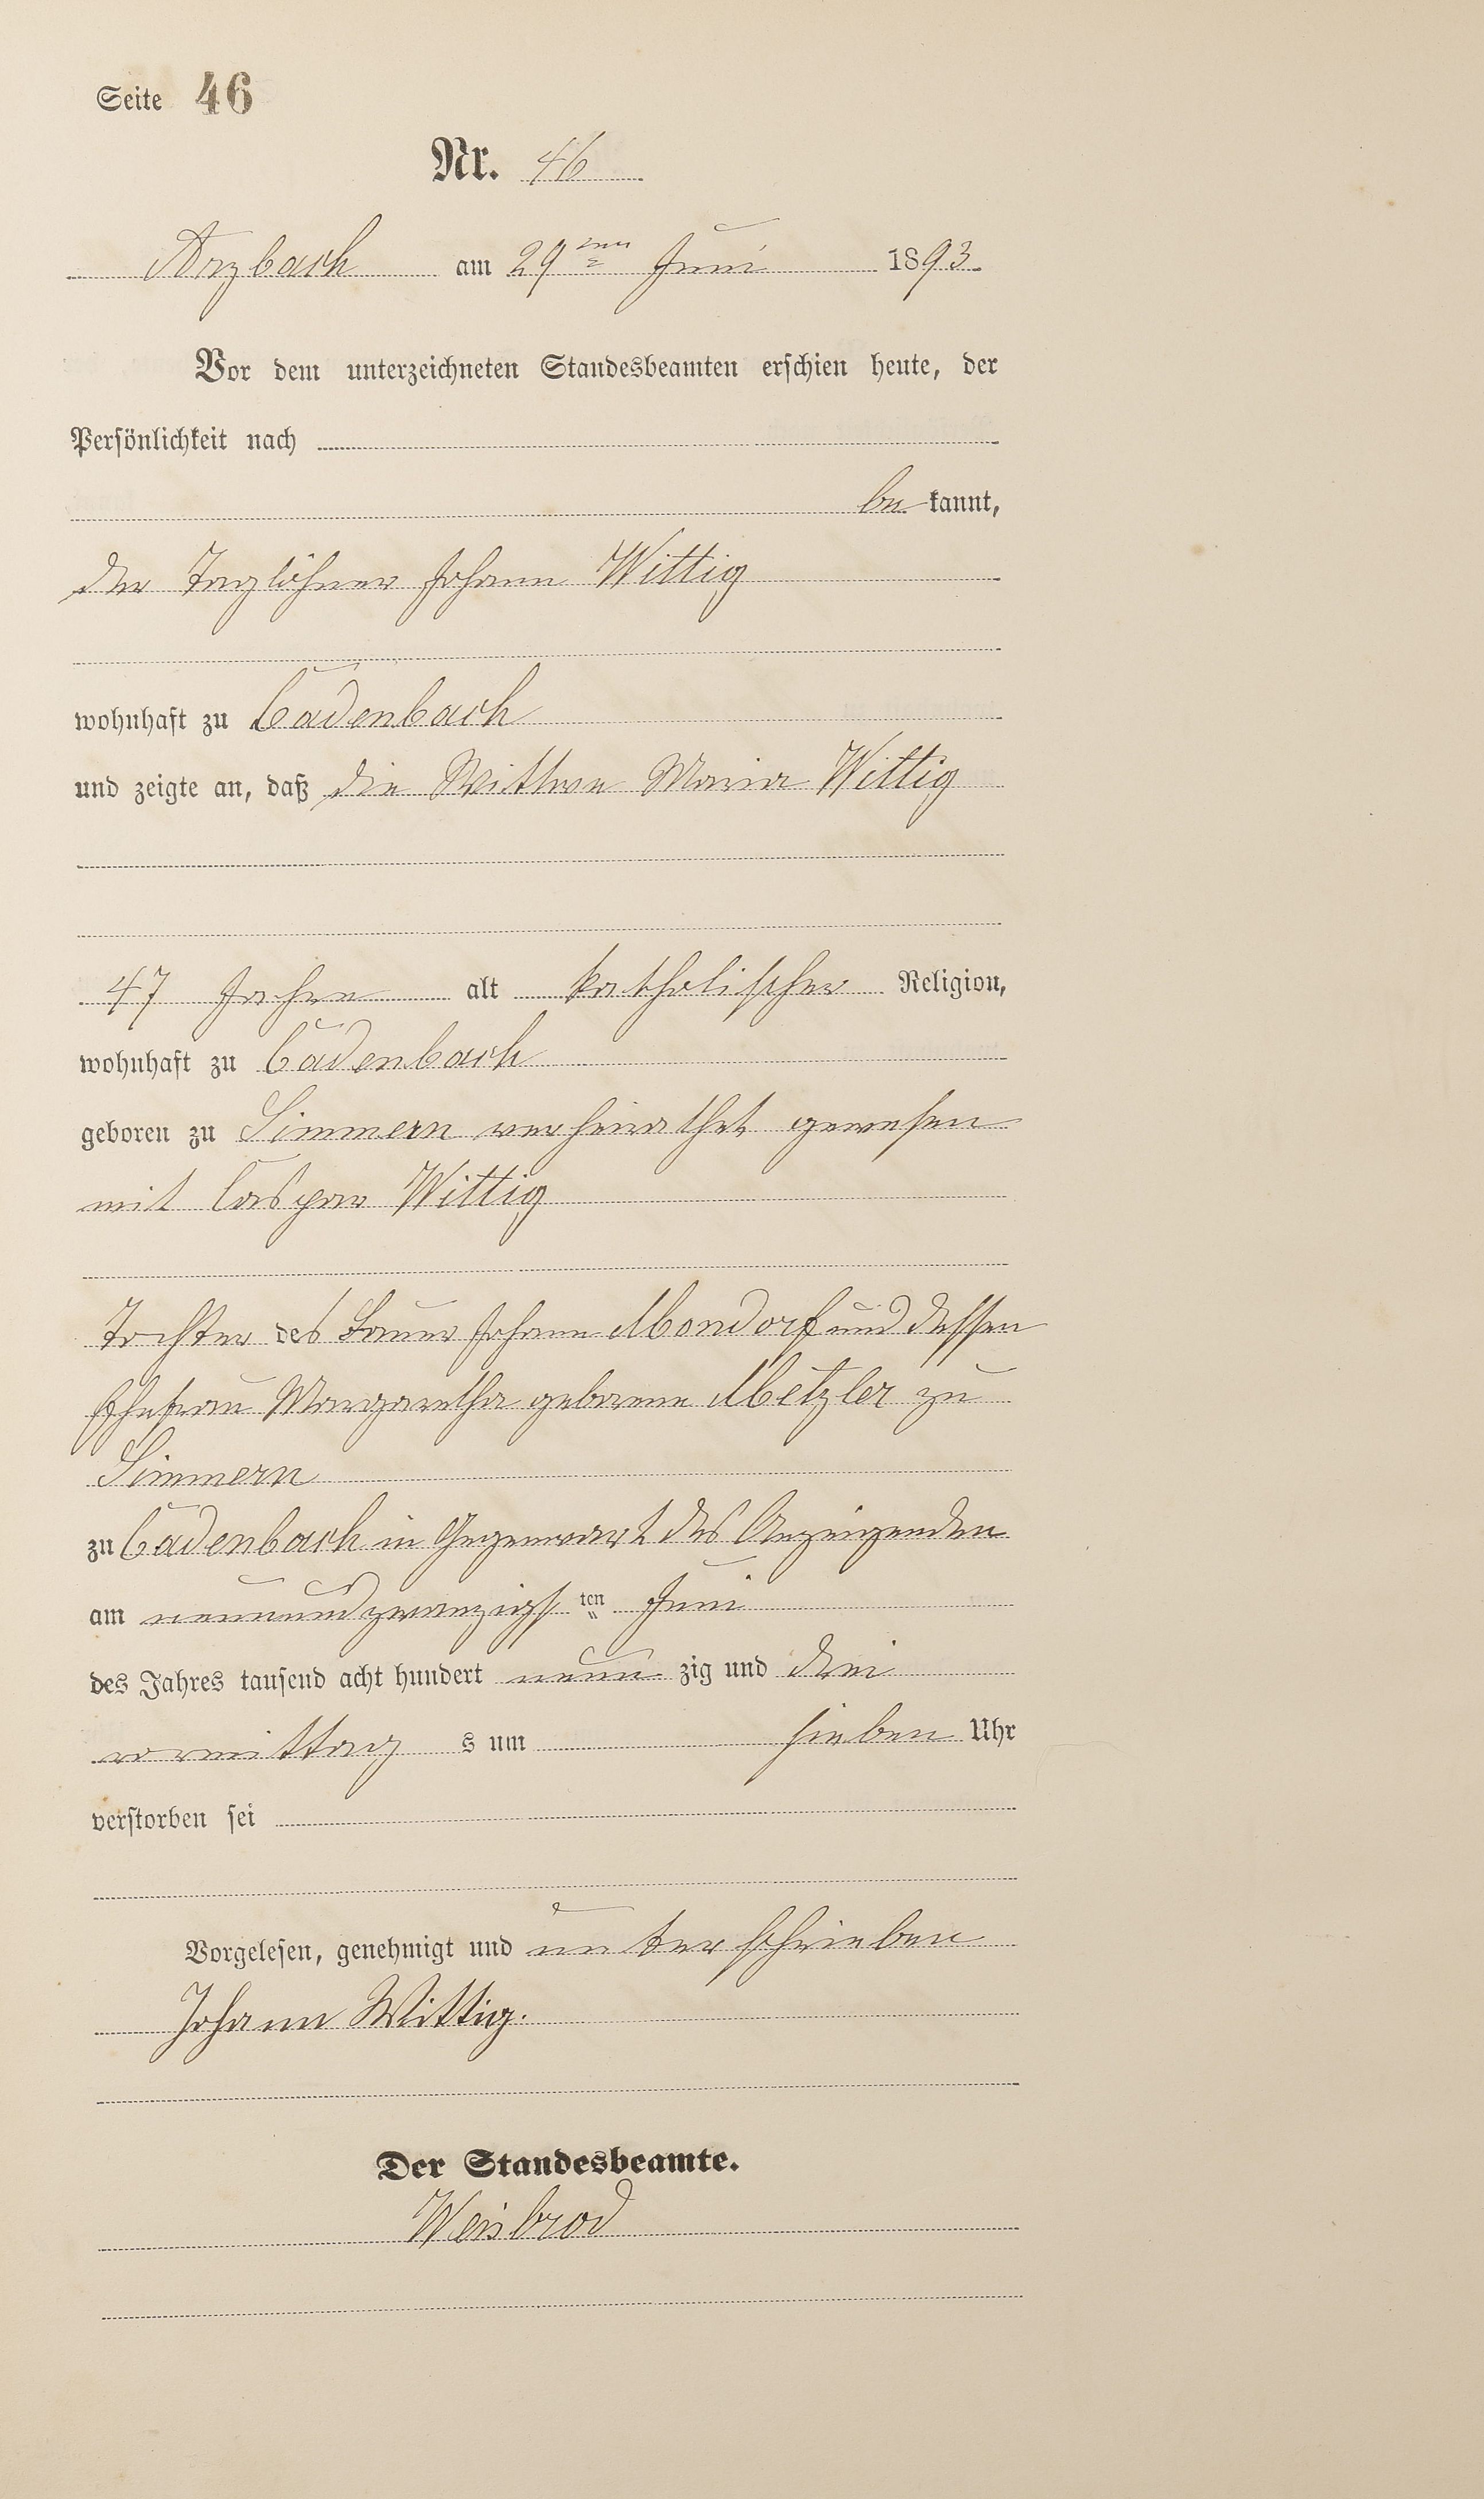 Seite 46
Nr. 46
Arzbach am 29ten Juni 1893.
Vor dem unterzeichneten Standesbeamten erschien heute, der
Persönlichkeit nach
be kannt,
der Taglöhner Johann Wittig
wohnhaft zu Cadenbach
und zeigte an, daß die Wittwe Maria Wittig
47 Jahre alt katholischer Religion,
wohnhaft zu Cadenbach
geboren zu Simmern verheirathet gewesen
mit Caspar Wittig
Tochter des Bauer Johann Mondorf und dessen
Ehefrau Margaretha geborene Metzler zu
Simmern
zu Cadenbach in Gegenwart des Anzeigenden
am neunundzwanzigs ten Juni
des Jahres tausend acht hundert neun zig und drei
vormittag s um sieben Uhr
verstorben sei
Vorgelesen, genehmigt und unterschrieben
Johann Wittig.
Der Standesbeamte.
Weisbrod